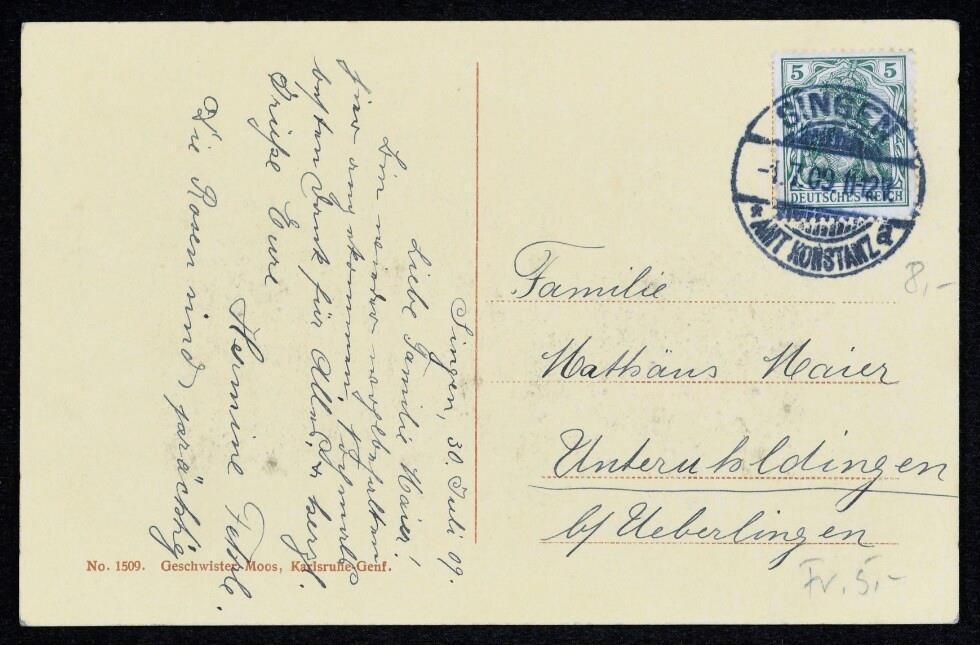 Singen, 30. Juli 09.
Liebe Familie Maier!
Bin wieder wohlbehalten
hier angekommen, nochmals
besten Dank für Alles, & herzl.
Grüße Eure
Hermine
Die Rosen sind prächtig
5 5
DEUTSCHES REICH
SINGEN
7.09 11-12V.
* AMT KONSTANZ a
8,-
Familie
Mathäus Maier
Unteruhldingen
b/ Ueberlingen
Fr. 5,-
No. 1509. Geschwister Moos, Karlsruhe-Genf.